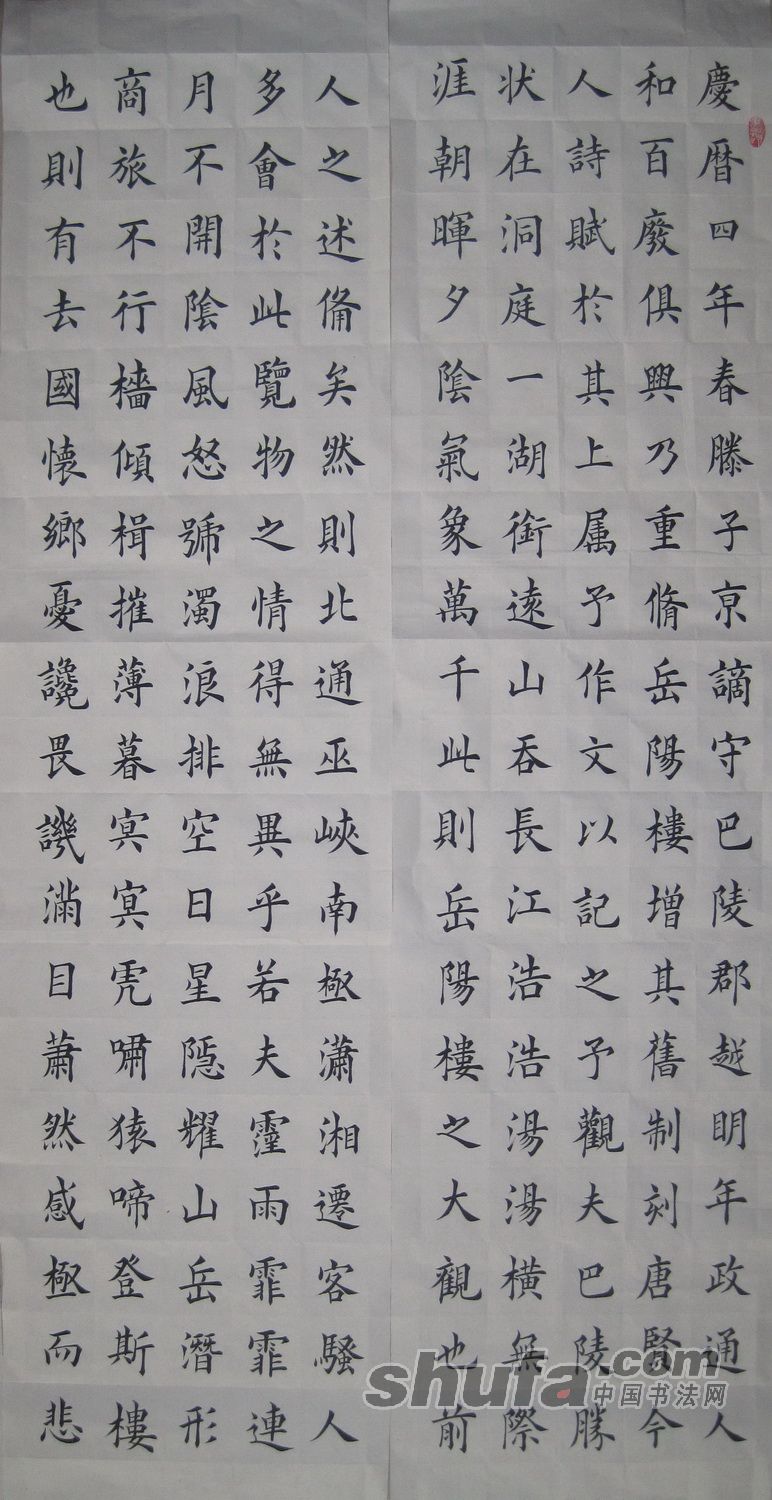 慶暦四年春滕子亰謫守巴陵郡越明年政通人
和百廢俱興乃重脩岳陽樓增其舊制刻唐賢今
人詩賦於其上属予作文以記之予觀夫巴陵勝
状在洞庭一湖銜遠山吞長江浩浩湯湯橫無際
涯朝暉夕陰氣象萬千此則岳陽樓之大觀也前
人之述俻矣然則北通巫峽南極瀟湘遷客騷人
多會於此覽物之情得無異乎若夫霪雨霏霏連
月不開陰風怒號濁浪排空日星隱耀山岳潛形
商旅不行檣傾楫摧薄暮冥冥虎嘯猿啼登斯樓
也則有去國懷鄉憂讒畏譏滿目蕭然感極而悲
shufa.com
中国书法网